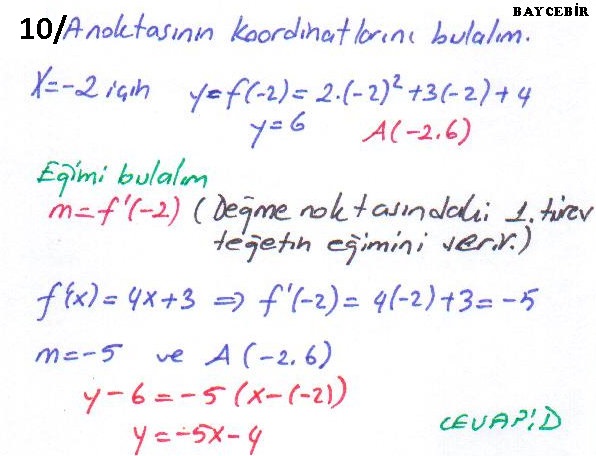 BAYCEBİR
10/A noktasının koordinatlarını bulalım.
X=-2 için y=f(-2)=2.(-2)²+3(-2)+4
y=6 A(-2.6)
Eğimi bulalım
m=f'(-2) (Değme noktasındaki 1. türev
teğetin eğimini verir.)
f'(x)=4x+3 ⇒ f'(-2)=4(-2)+3=-5
m=-5 ve A(-2.6)
y-6=-5(x-(-2))
y=-5x-4
CEVAP:D